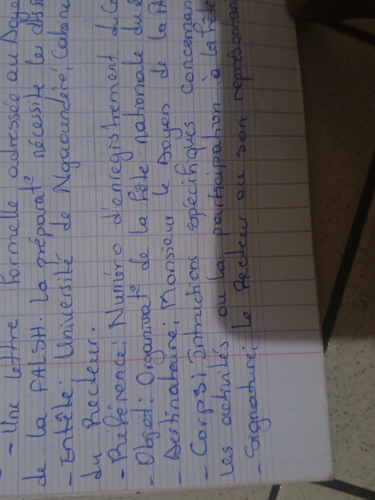 - Une lettre formelle adressée au Doye
de la FALSH. La préparat° nécessite les
- Entête: Université de Ngaoundéré, Cabine
du Recteur.
- Référence: Numéro d'enregistrement du Co
- Objet: Organisat° de la fête nationale du
- Destinataire: Monsieur le Doyen de la
- Corps: Instructions spécifiques concernan
les activités ou la participation à la fête
- Signature: Le Recteur ou son représentan